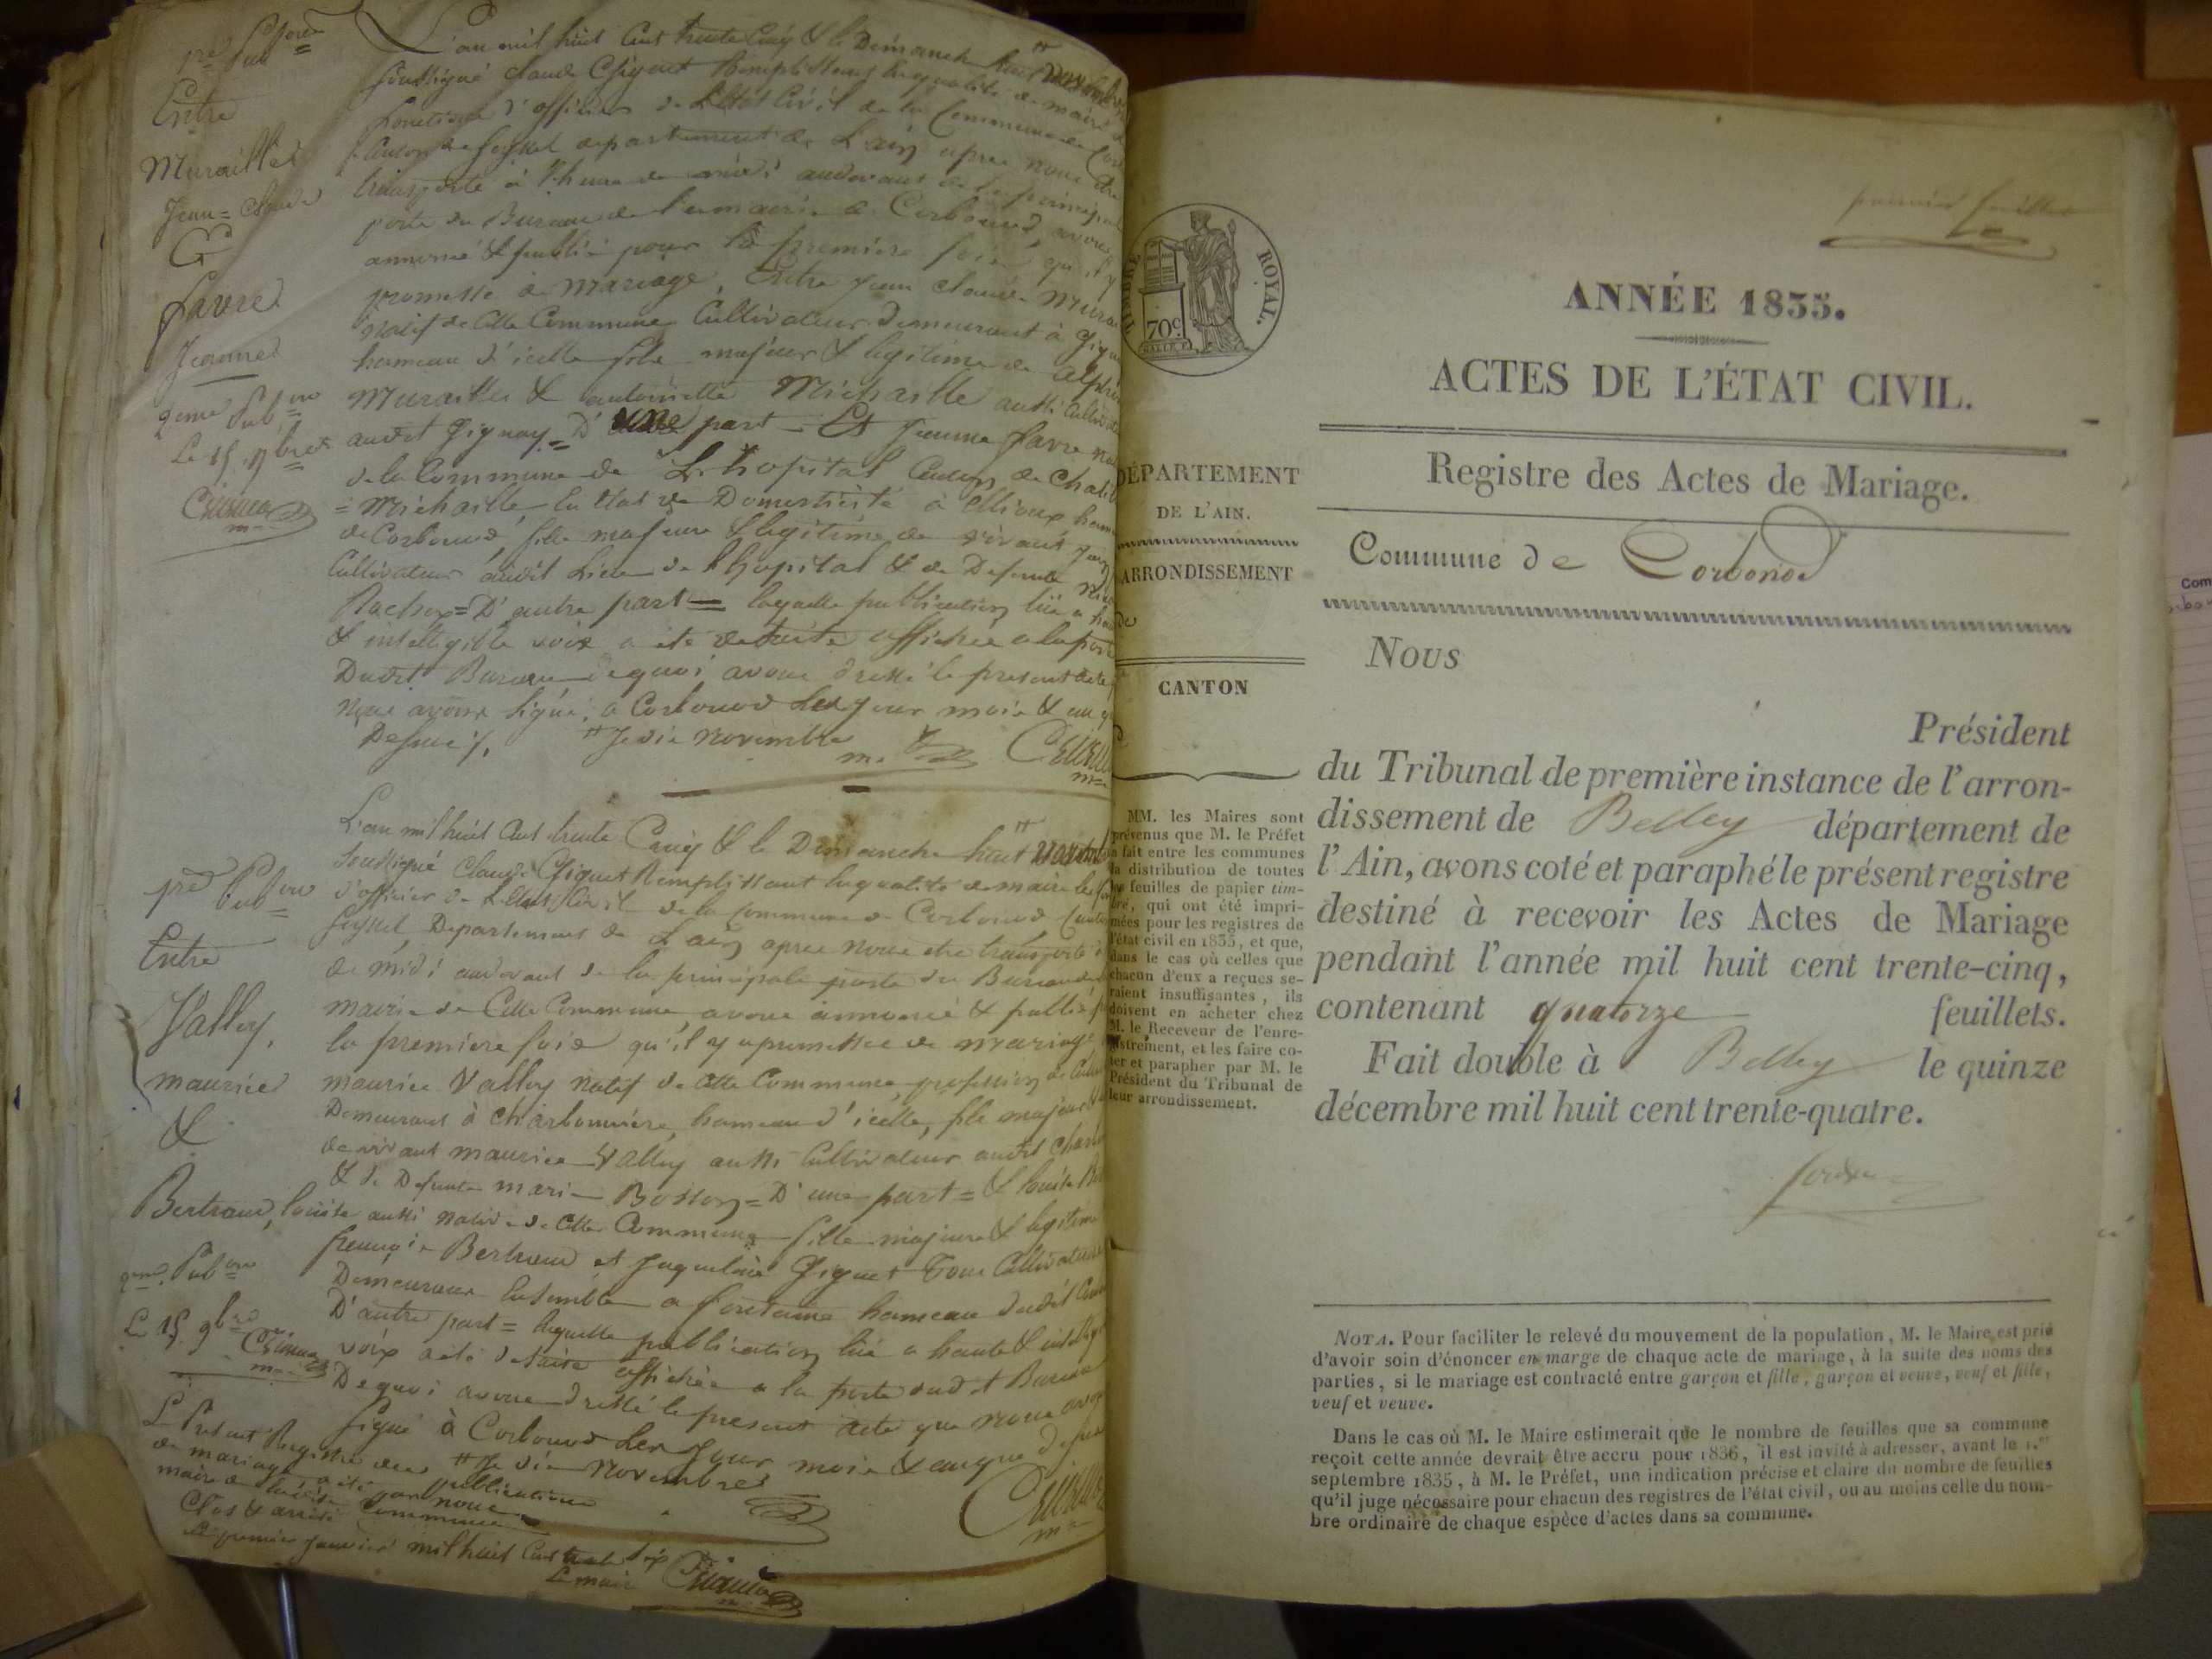 pre Pub
Entre
Muraillet
Jean = Claude
&
Favre
Jeanne
2eme Pub
Le 15 9bre
L'an mil huit Cent trente Cinq & le Dimanche huit novembre
soussigné Claude Chiquet Remplissant la qualité de maire
fonctions d'officier de L'Etat Civil de la Commune de
Canton de Seyssel departement de L'ain apres nous être
transporté à l'heure de midi audevant de la principale
porte du Bureau de la mairie de Corbonod, avons
annoncé & publié pour la premiere fois qu'il y
promesse de mariage, Entre Jean Claude
natif de Cette Commune Cultivateur Demeurant à
hameau d'icelle fils majeur & legitime de
Muraillet & antoinette Michaille aussi
audit Gignay = D'une part = Et Jeanne Favre
de la Commune de L'hopital Canton de
= Michaille En Etat de Domesticité à
de Corbonod, fille majeure & legitime de vivant
Cultivateur audit Lieu de l'hopital & de Defunte
= D'autre part = laquelle publication lüe a
& intelligible voix a été de suite affichée a la porte
Dudit Bureau de quoi avons dressé le present acte
nous avons signé, a Corbonod Les jour mois & an
Desus.
Je dis novembre
pre Pub
Entre
Valley,
maurice
&
Bertrand, Louise
2eme Pub
Le 15 9bre
L'an mil huit Cent trente Cinq & le Dimanche huit novembre
Soussigné Claude Chiquet Remplissant la qualité de maire
d'officier de L'Etat Civil de la Commune de Corbonod
Seyssel Departement de L'ain apres nous etre transporté
de midi audevant de la principale porte du Bureau
mairie de Cette Commune avons annoncé & publié
la premiere fois qu'il y a promesse de mariage
maurice Valley natif de Cette Commune profession de
Demeurant à Charbonnière, hameau d'icelle, fils majeur
de vivant maurice Valley aussi Cultivateur audit
& de Defunte marie Bosson = D'une part = & Louise
aussi native de Cette Commune fille majeure & legitime
françois Bertrand et Jaqueline Giguet Tous Cultivateurs
Demeurant Ensemble a fontaine hameau dudit
D'autre part = laquelle publication lüe a haute &
voix a été de suite affichée a la porte dudit Bureau
De quoi avons dressé le present acte que nous avons
signé à Corbonod Les Jour mois & an que
Je dis novembre
Le Present Registre des publications
de mariage a été par nous
maire de la dite Commune
Clos & arrêté
Le premier janvier mil huit Cent trente six
Le maire
TIMBRE ROYAL.
70c
premier feuillet
ANNÉE 1835.
ACTES DE L'ÉTAT CIVIL.
Registre des Actes de Mariage.
Commune de Corbonod
DÉPARTEMENT
DE L'AIN.
ARRONDISSEMENT
CANTON
MM. les Maires sont
prévenus que M. le Préfet
a fait entre les communes
la distribution de toutes
les feuilles de papier tim-
bré, qui ont été impri-
mées pour les registres de
l'état civil en 1835, et que,
dans le cas où celles que
chacun d'eux a reçues se-
raient insuffisantes, ils
doivent en acheter chez
M. le Receveur de l'enre-
gistrement, et les faire co-
ter et parapher par M. le
Président du Tribunal de
leur arrondissement.
Nous
Président
du Tribunal de première instance de l'arron-
dissement de Belley département de
l'Ain, avons coté et paraphé le présent registre
destiné à recevoir les Actes de Mariage
pendant l'année mil huit cent trente-cinq,
contenant quatorze feuillets.
Fait double à Belley le quinze
décembre mil huit cent trente-quatre.
NOTA. Pour faciliter le relevé du mouvement de la population, M. le Maire est prié
d'avoir soin d'énoncer en marge de chaque acte de mariage, à la suite des noms des
parties, si le mariage est contracté entre garçon et fille, garçon et veuve, veuf et fille,
veuf et veuve.
Dans le cas où M. le Maire estimerait que le nombre de feuilles que sa commune
reçoit cette année devrait être accru pour 1836, il est invité à adresser, avant le 1.er
septembre 1835, à M. le Préfet, une indication précise et claire du nombre de feuilles
qu'il juge nécessaire pour chacun des registres de l'état civil, ou au moins celle du nom-
bre ordinaire de chaque espèce d'actes dans sa commune.
Com